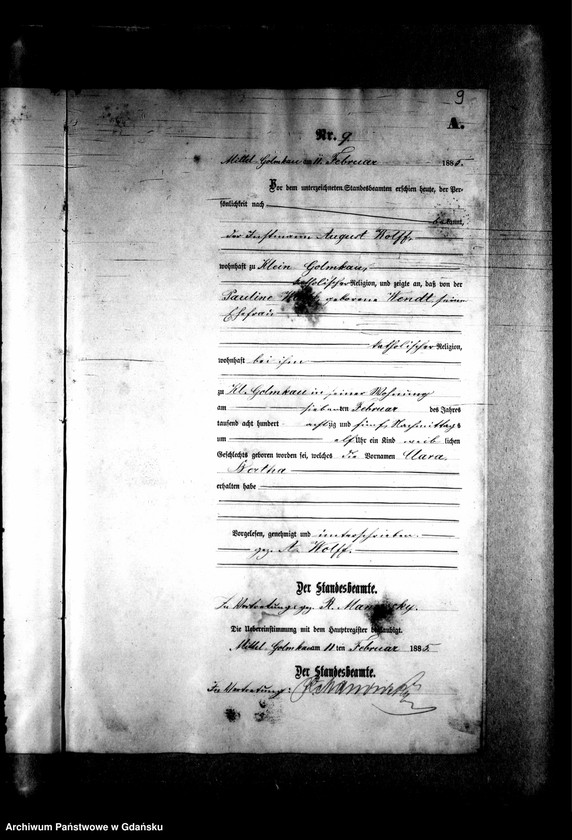 9
A.
Nr. 9.
Mittel Golmkau am 11 Februar 1885.
Vor dem unterzeichneten Standesbeamten erschien heute, der Per-
sönlichkeit nach
bekannt,
der Instmann August Wolff,
wohnhaft zu Klein Golmkau,
katholischer Religion, und zeigte an, daß von der
Pauline Wolff, geborene Wendt seiner
Ehefrau
katholischer Religion,
wohnhaft bei ihm
zu Kl. Golmkau in seiner Wohnung
am siebenten Februar des Jahres
tausend acht hundert achtzig und fünf Nachmittags
um elf Uhr ein Kind weiblichen
Geschlechts geboren worden sei, welches die Vornamen Clara
Bertha
erhalten habe
Vorgelesen, genehmigt und unterschrieben.
gez. A. Wolff.
Der Standesbeamte.
In Vertretung gez. R. Manowsky.
Die Uebereinstimmung mit dem Hauptregister beglaubigt.
Mittel Golmkau am 11 ten Februar 1885.
Der Standesbeamte.
In Vertretung: R Manowsky
Archiwum Państwowe w Gdańsku